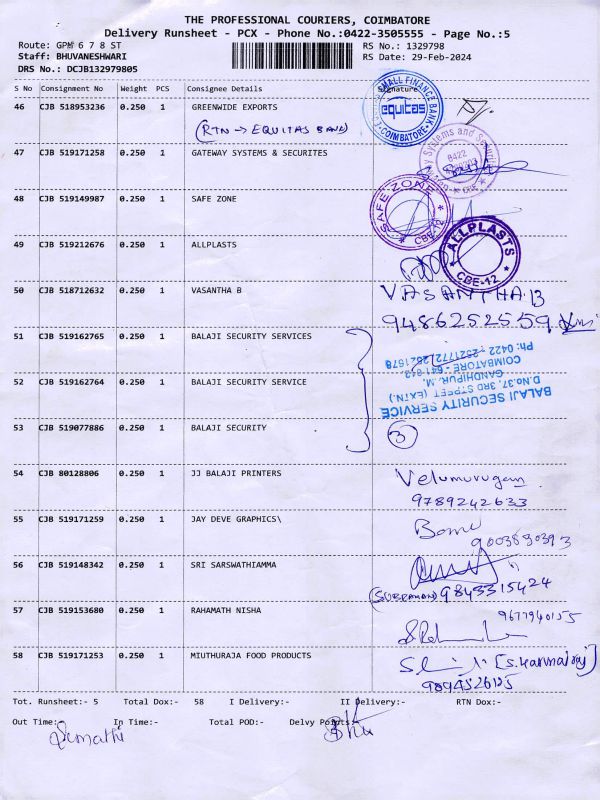 THE PROFESSIONAL COURIERS, COIMBATORE
Delivery Runsheet - PCX - Phone No.:0422-3505555 - Page No.:5
Route: GPM 6 7 8 ST
RS No.: 1329798
Staff: BHUVANESHWARI
RS Date: 29-Feb-2024
DRS No.: DCJB132979805
S No Consignment No Weight PCS Consignee Details Signature
46 CJB 518953236 0.250 1 GREENWIDE EXPORTS
(RTN → EQUITAS BANK)
equitas
SMALL FINANCE BANK
COIMBATORE
47 CJB 519171258 0.250 1 GATEWAY SYSTEMS & SECURITES
Systems and
0422
48 CJB 519149987 0.250 1 SAFE ZONE
SAFE ZONE
CBE-12
49 CJB 519212676 0.250 1 ALLPLASTS
ALLPLASTS
CBE-12
50 CJB 518712632 0.250 1 VASANTHA B
VASANTHA B
9486252559
51 CJB 519162765 0.250 1 BALAJI SECURITY SERVICES
52 CJB 519162764 0.250 1 BALAJI SECURITY SERVICE
BALAJI SECURITY SERVICE
D.No:37, 3RD STREET (EXTN.)
GANDHIPUR. M.
COIMBATORE - 641 012.
Ph: 0422 - 2521772, 2521678
53 CJB 519077886 0.250 1 BALAJI SECURITY
3
54 CJB 80128806 0.250 1 JJ BALAJI PRINTERS
Velumurugan
9789242633
55 CJB 519171259 0.250 1 JAY DEVE GRAPHICS\
9003830393
56 CJB 519148342 0.250 1 SRI SARSWATHIAMMA
9843315424
57 CJB 519153680 0.250 1 RAHAMATH NISHA
9677940155
58 CJB 519171253 0.250 1 MIUTHURAJA FOOD PRODUCTS
9894526125
Tot. Runsheet:- 5 Total Dox:- 58 I Delivery:- II Delivery:- RTN Dox:-
Out Time:- In Time:- Total POD:- Delvy Points:-